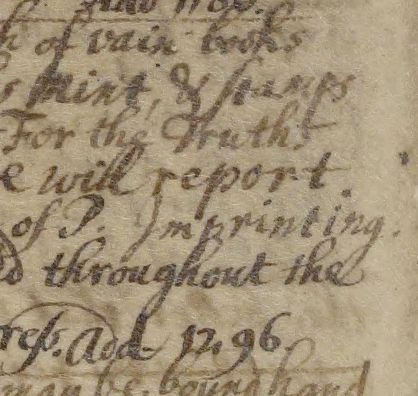 of vain books
paint, & stamps
For the Truths
e will report
of P. Imprinting.
throughout the
ress. Add. 1296.
may be bound hand